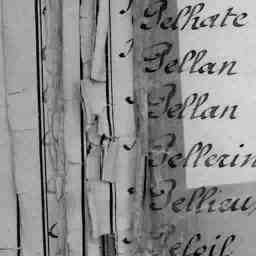 Pelhate
Pellan
Pellan
Pellerin
Pellieu